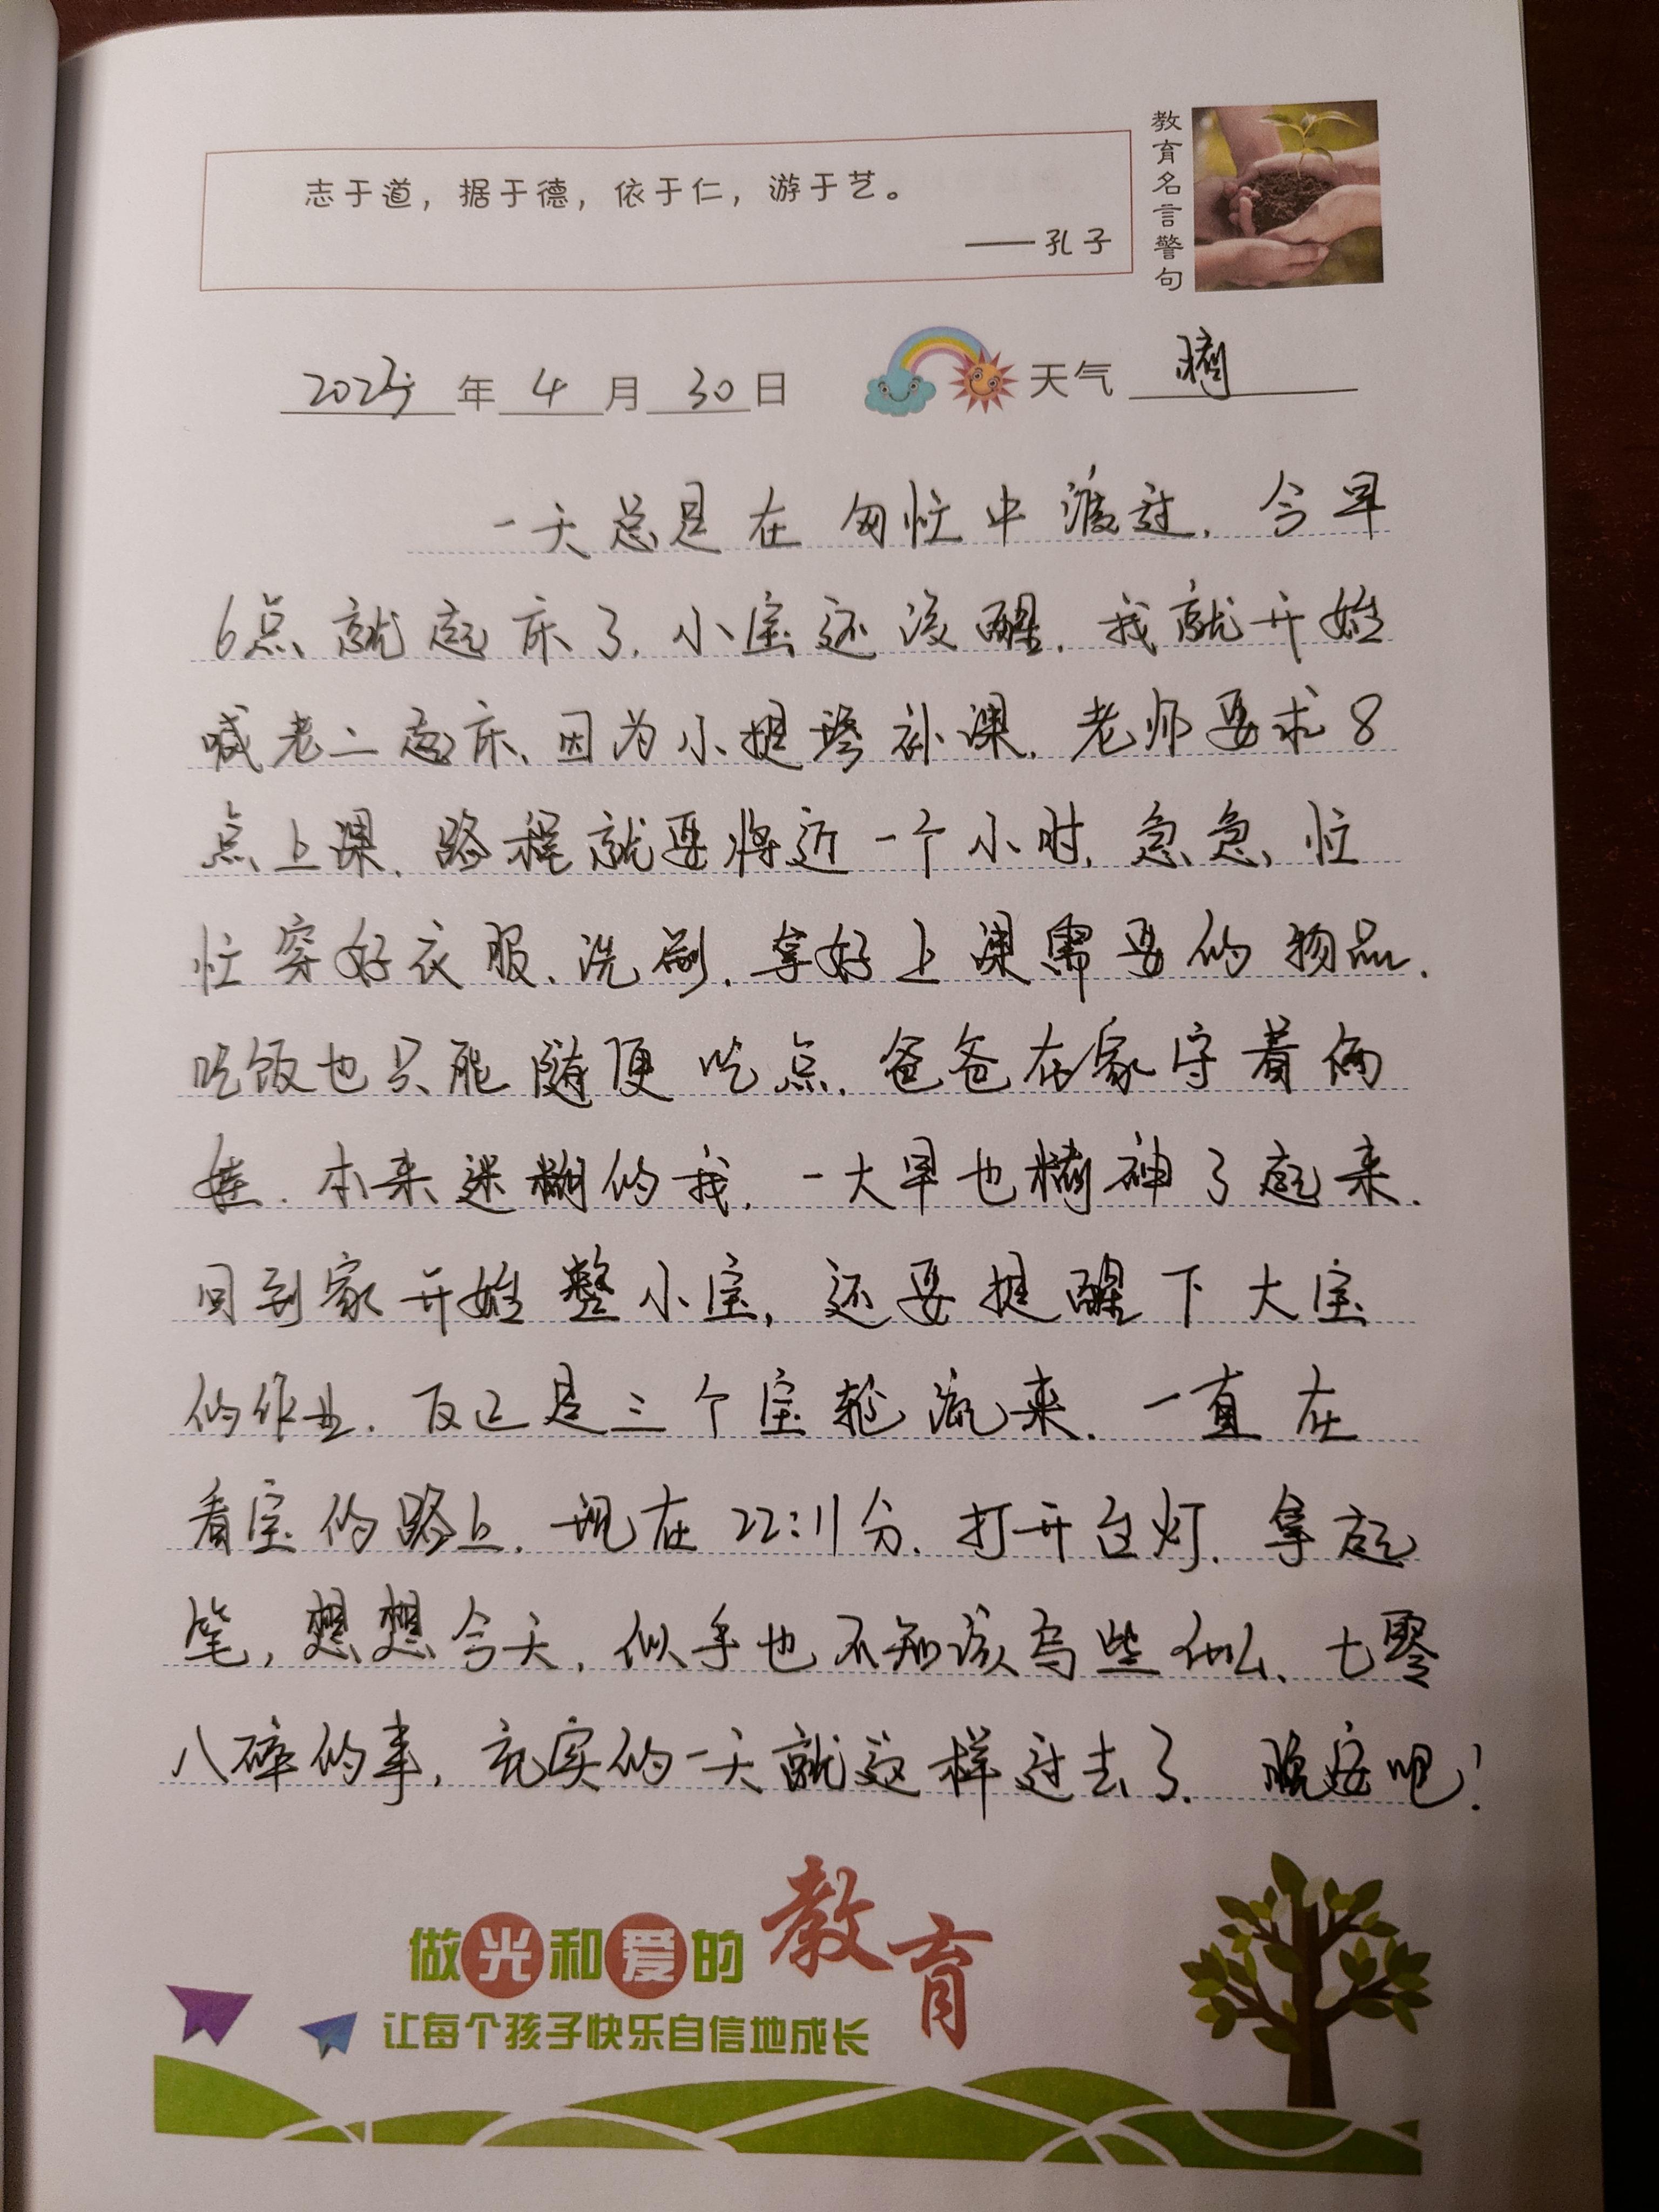 志于道，据于德，依于仁，游于艺。
——孔子
教育名言警句
2025年4月30日 天气 晴
一天总是在匆忙中渡过.今早
6点就起床了.小宝还没醒.我就开始
喊老二起床、因为小提琴补课.老师要求8
点上课.路程就要将近一个小时.急急、忙
忙穿好衣服、洗刷.拿好上课需要的物品.
吃饭也只能随便吃点.爸爸在家守着俩
娃.本来迷糊的我.一大早也精神了起来.
回到家开始整小宝,还要提醒下大宝
的作业.反正是三个宝轮流来.一直在
看宝的路上.现在22:11分.打开台灯.拿起
笔,想想今天.似乎也不知该写些什么、七零
八碎的事,充实的一天就这样过去了.晚安吧!
做光和爱的教育
让每个孩子快乐自信地成长